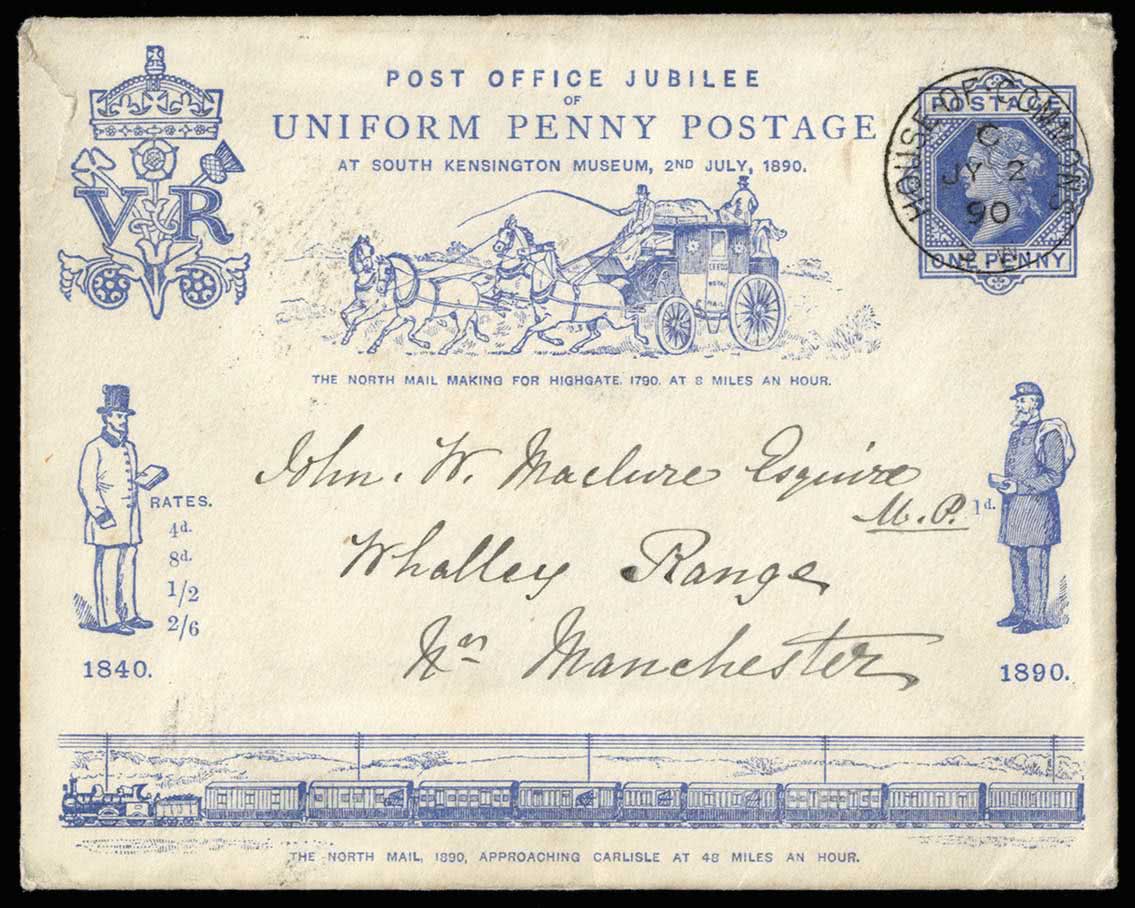 POST OFFICE JUBILEE
OF
UNIFORM PENNY POSTAGE
AT SOUTH KENSINGTON MUSEUM, 2ND JULY, 1890.
VR
POSTAGE
ONE PENNY
HOUSE OF COMMONS
C
JY 2
90
THE NORTH MAIL MAKING FOR HIGHGATE. 1790. AT 8 MILES AN HOUR.
John. W. Maclure Esquire
M.P.
Whalley Range
Nr Manchester
RATES.
4d.
8d.
1/2
2/6
1840.
1d.
1890.
THE NORTH MAIL, 1890, APPROACHING CARLISLE AT 48 MILES AN HOUR.